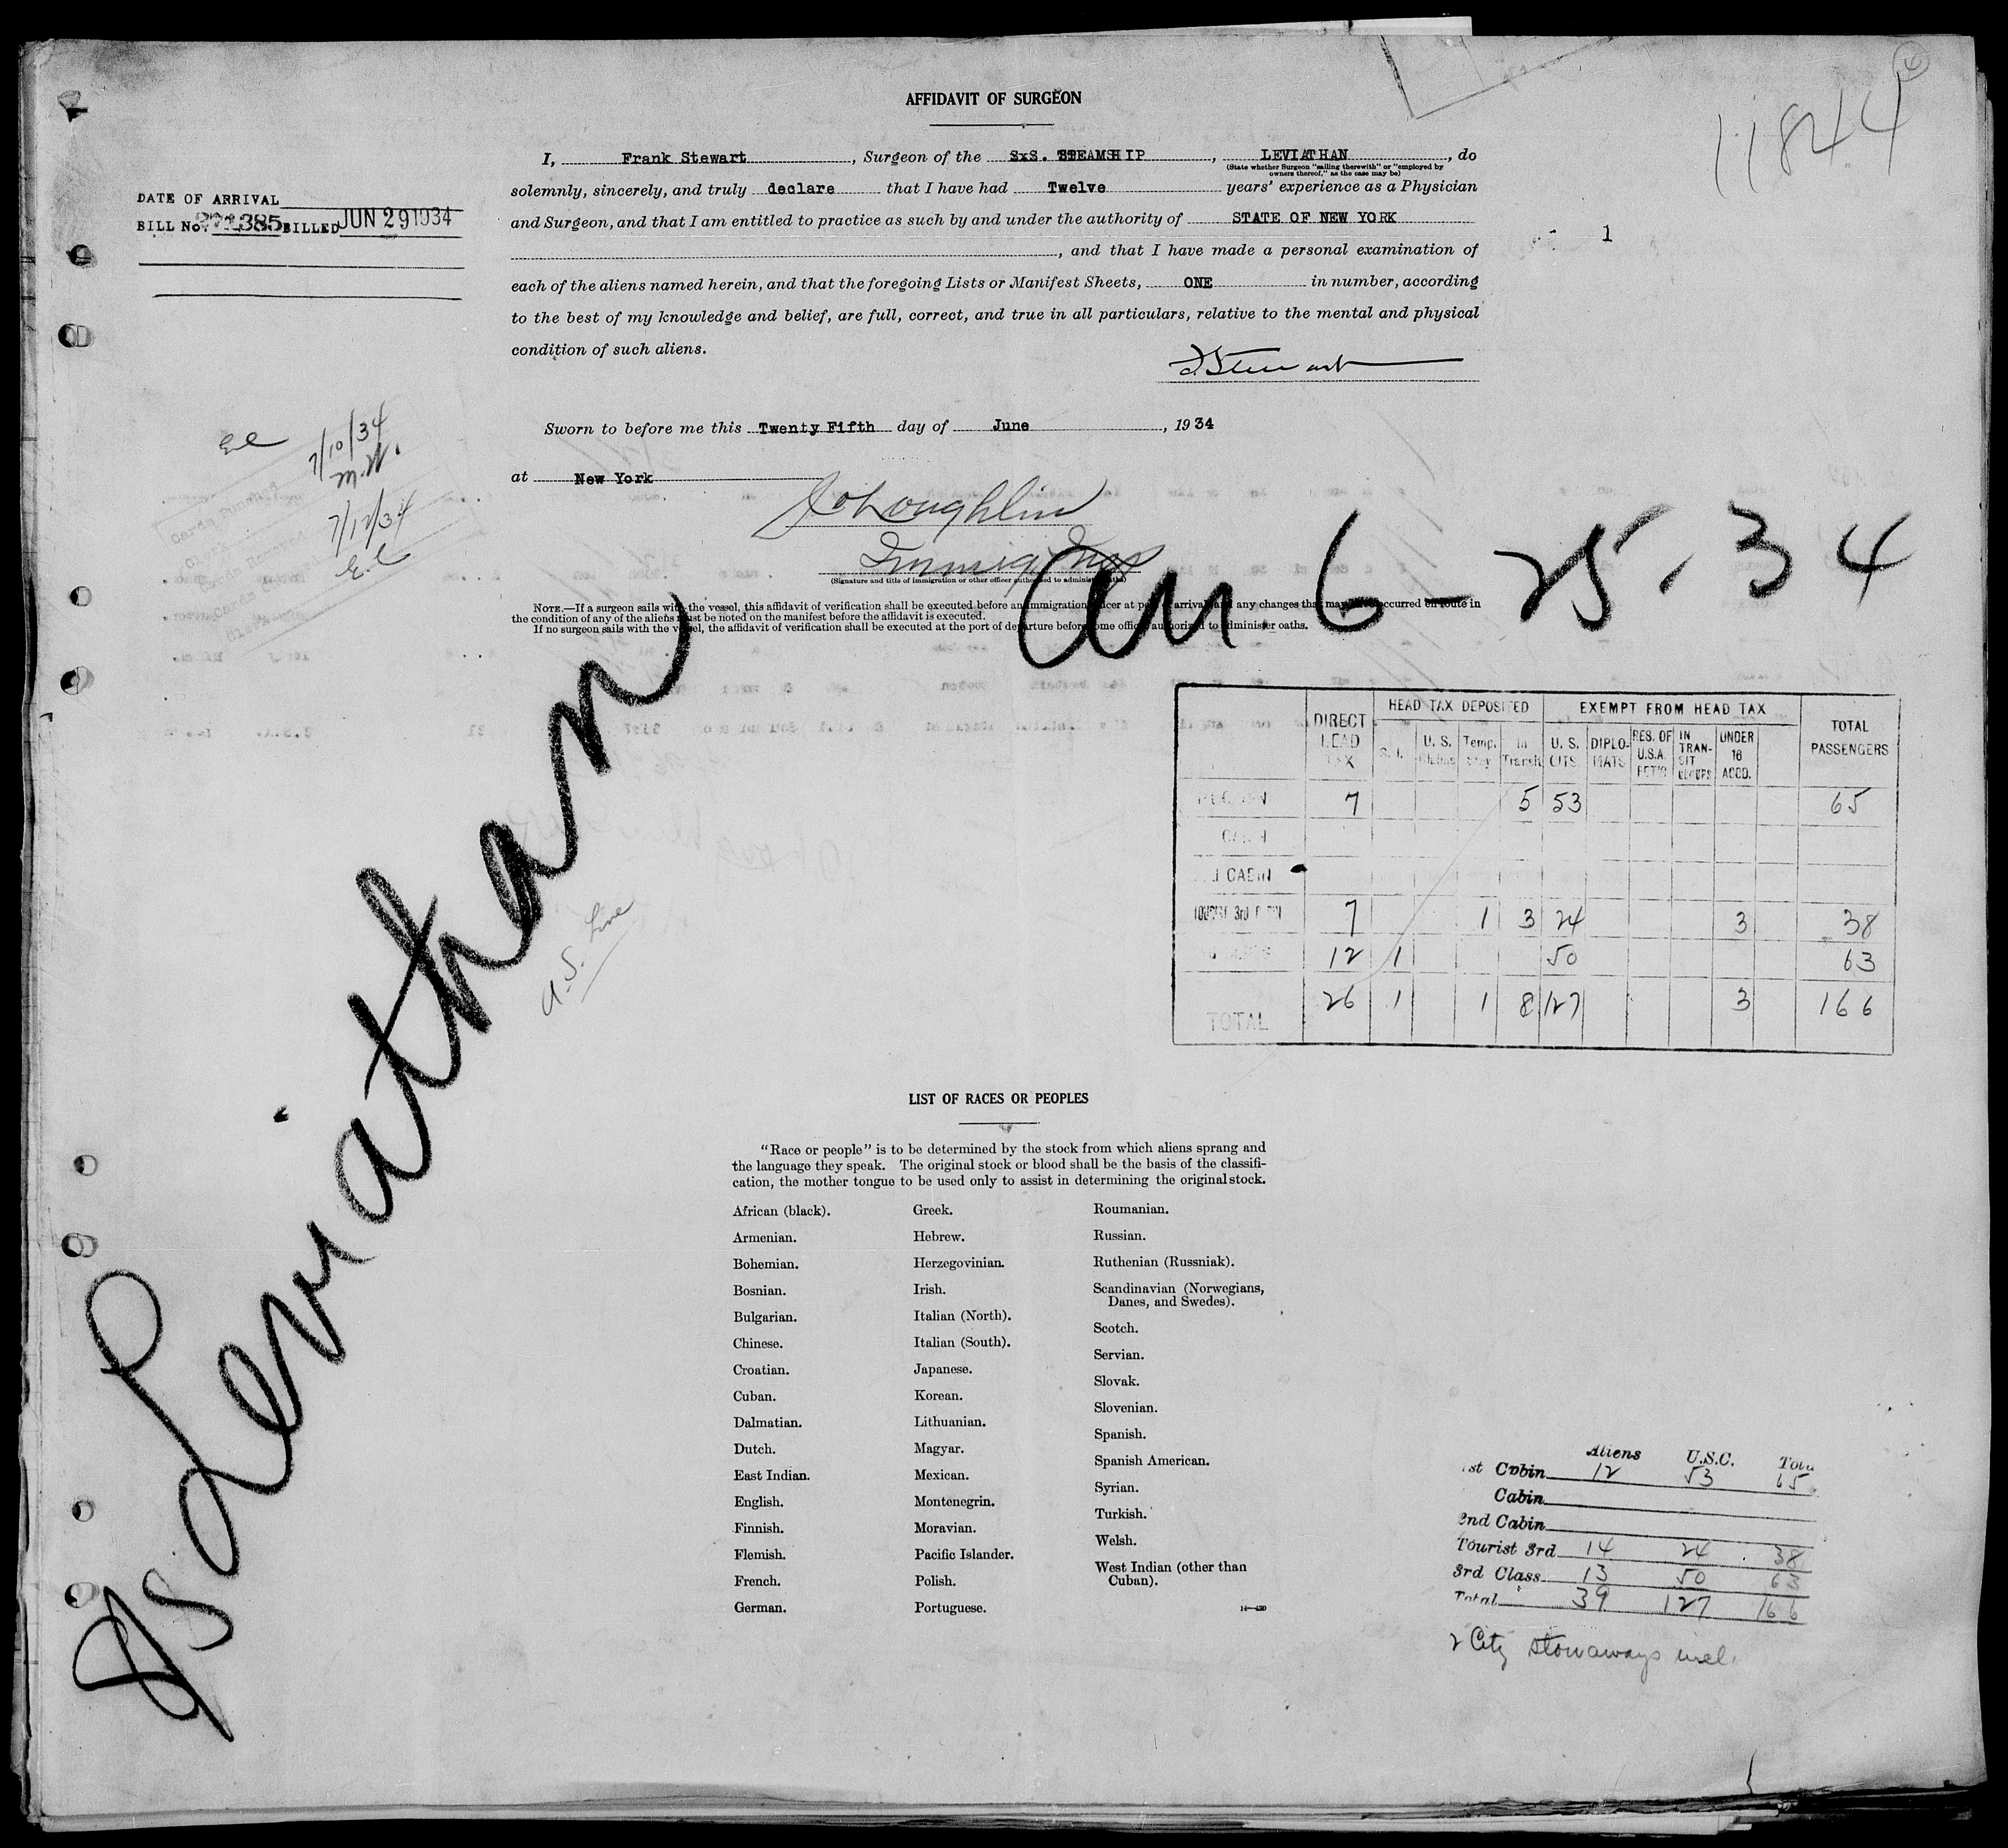 AFFIDAVIT OF SURGEON
11844
I, Frank Stewart, Surgeon of the SxS. STEAMSHIP, LEVIATHAN, do
(State whether Surgeon "sailing therewith" or "employed by
owners thereof," as the case may be)
solemnly, sincerely, and truly declare that I have had Twelve years' experience as a Physician
and Surgeon, and that I am entitled to practice as such by and under the authority of STATE OF NEW YORK
, and that I have made a personal examination of
each of the aliens named herein, and that the foregoing Lists or Manifest Sheets, ONE in number, according
to the best of my knowledge and belief, are full, correct, and true in all particulars, relative to the mental and physical
condition of such aliens.
F Stewart
DATE OF ARRIVAL
BILL No. 385 BILLED JUN 29 1934
1
Sworn to before me this Twenty Fifth day of June, 1934
at New York
7/10/34
M.W.
7/12/34
(Signature and title of immigration or other officer authorized to administer oaths)
6-25-34
NOTE.—If a surgeon sails with the vessel, this affidavit of verification shall be executed before an immigration officer at port of arrival and any changes that may have occurred en route in
the condition of any of the aliens must be noted on the manifest before the affidavit is executed.
If no surgeon sails with the vessel, the affidavit of verification shall be executed at the port of departure before some officer authorized to administer oaths.
S/S Leviathan
U.S. Line
DIRECT HEAD TAX
HEAD TAX DEPOSITED
EXEMPT FROM HEAD TAX
TOTAL PASSENGERS
S.I. U.S. Temp. Stay In Transit U.S. CITS DIPLOMATS RES. OF U.S.A. IN TRANSIT UNDER 16 ACCD.
7 5 53 65
CABIN
CABIN
TOURIST 3rd 7 1 3 24 3 38
12 1 50 63
TOTAL 26 1 1 8 127 3 166
LIST OF RACES OR PEOPLES
"Race or people" is to be determined by the stock from which aliens sprang and
the language they speak. The original stock or blood shall be the basis of the classifi-
cation, the mother tongue to be used only to assist in determining the original stock.
African (black).
Armenian.
Bohemian.
Bosnian.
Bulgarian.
Chinese.
Croatian.
Cuban.
Dalmatian.
Dutch.
East Indian.
English.
Finnish.
Flemish.
French.
German.
Greek.
Hebrew.
Herzegovinian.
Irish.
Italian (North).
Italian (South).
Japanese.
Korean.
Lithuanian.
Magyar.
Mexican.
Montenegrin.
Moravian.
Pacific Islander.
Polish.
Portuguese.
Roumanian.
Russian.
Ruthenian (Russniak).
Scandinavian (Norwegians,
Danes, and Swedes).
Scotch.
Servian.
Slovak.
Slovenian.
Spanish.
Spanish American.
Syrian.
Turkish.
Welsh.
West Indian (other than
Cuban).
Aliens U.S.C. Total
1st Cabin 12 53 65
Cabin
2nd Cabin
Tourist 3rd 14 24 38
3rd Class 13 50 63
Total 39 127 166
2 City stowaways incl.